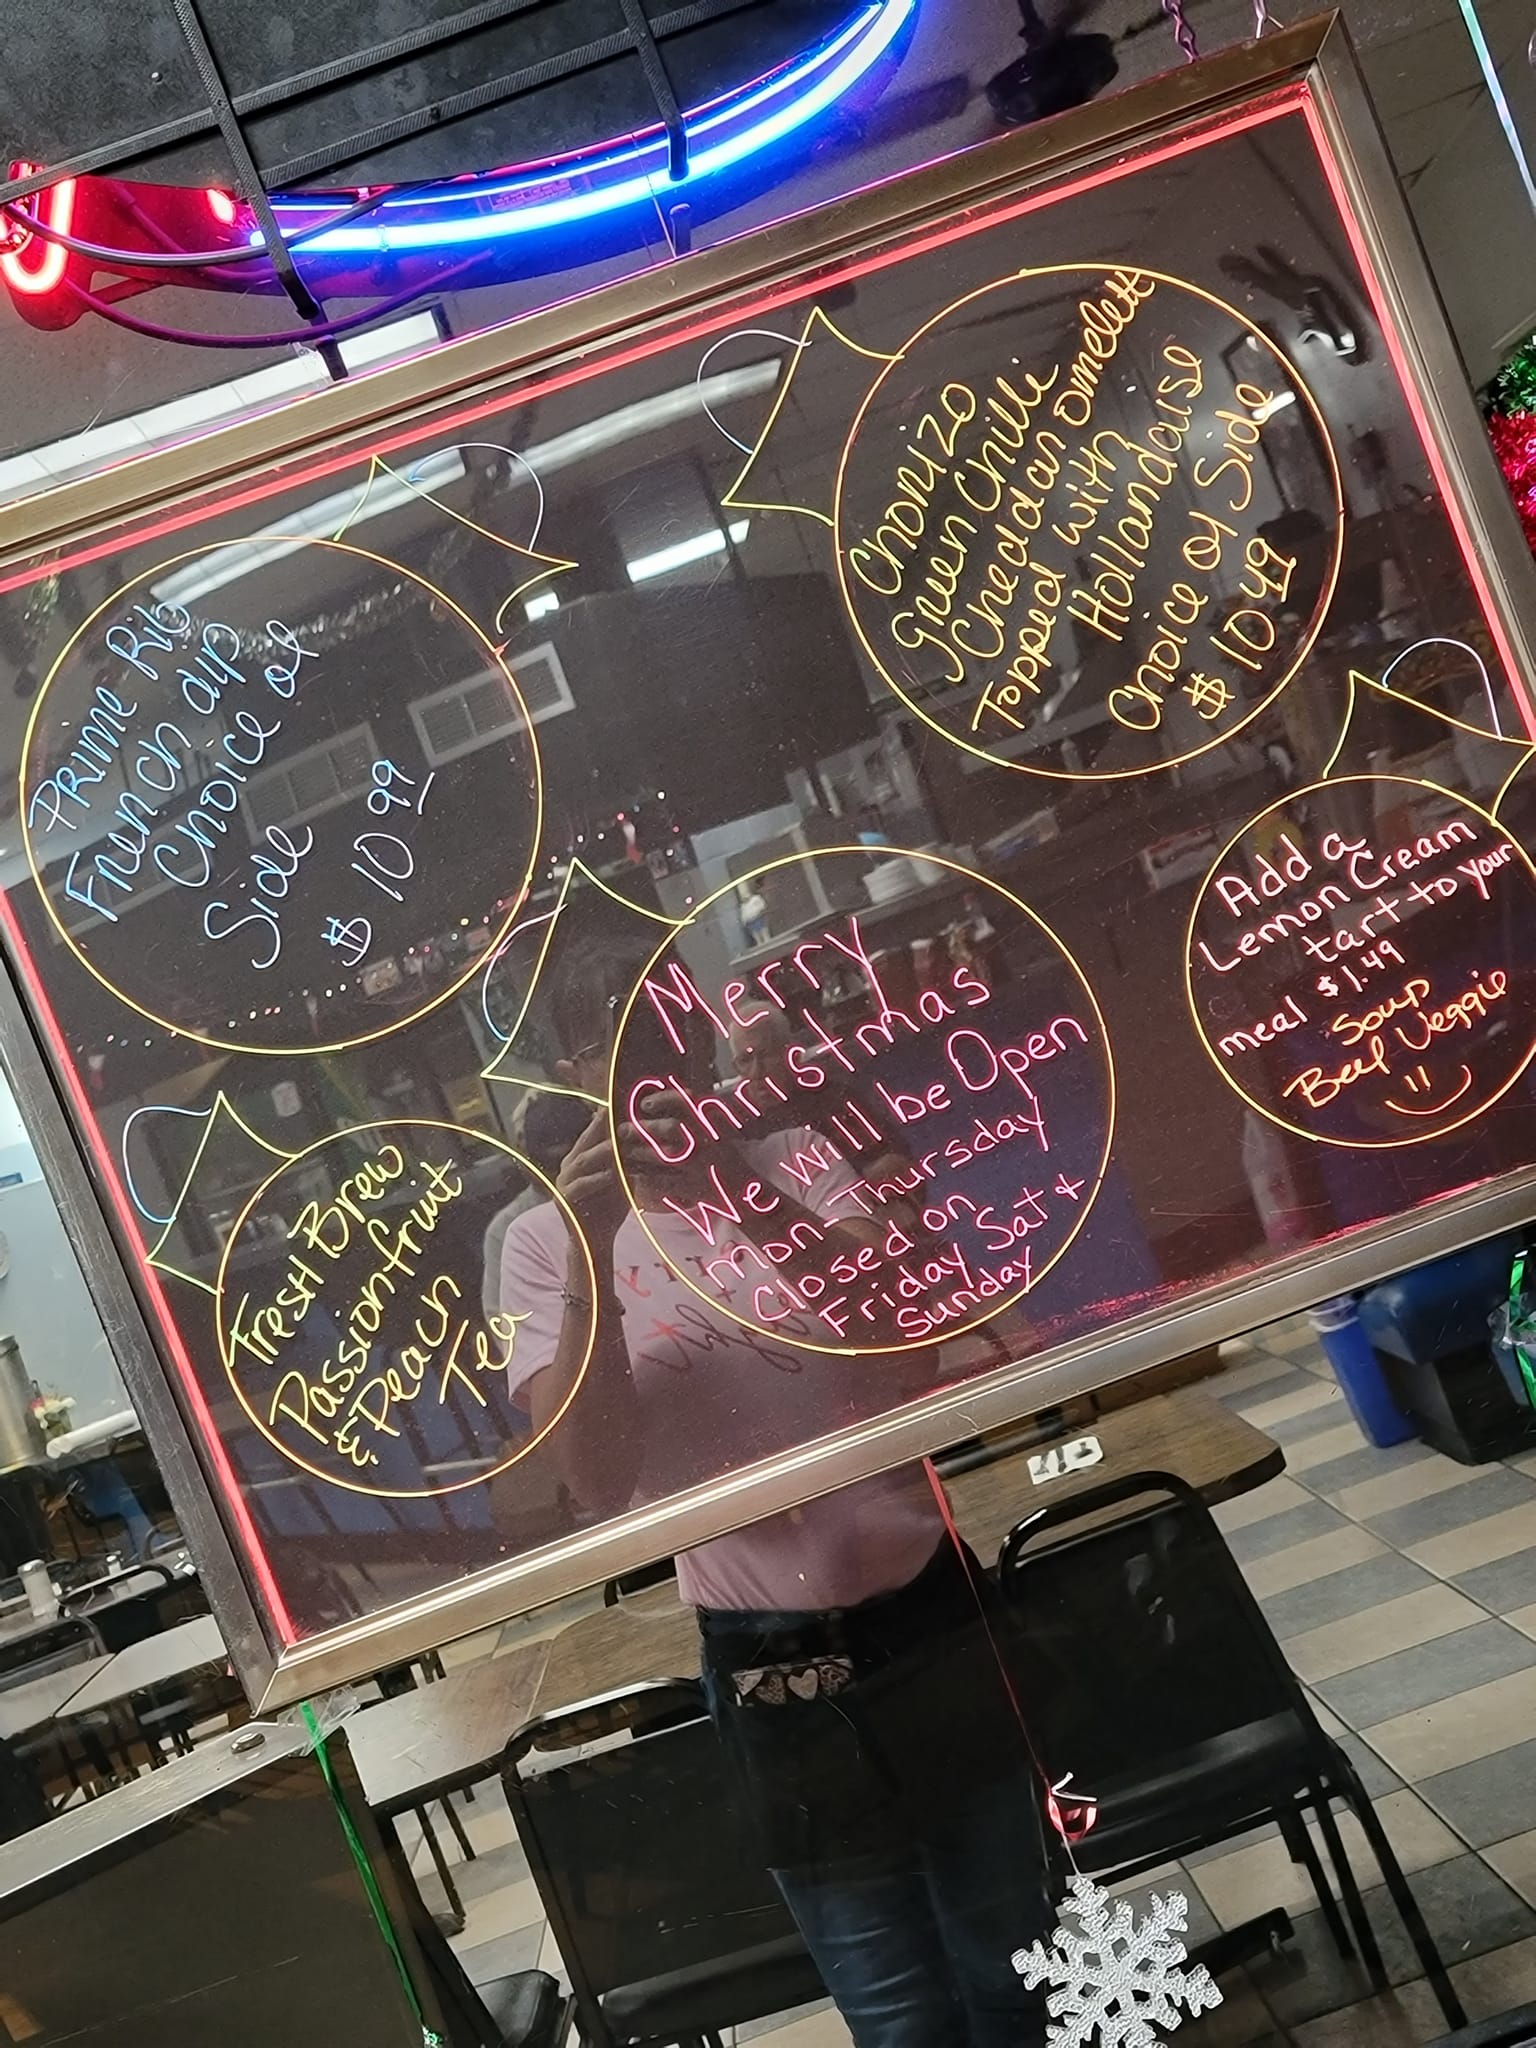 Prime Rib
French dip
Choice of
Side
$ 10 99
Chorizo
Green Chilli
Cheddar Omelett
Topped with
Hollandaise
Choice of Side
$ 10 49
Add a
Lemon Cream
tart to your
meal $1.49
Soup
Beef Veggie
Merry
Christmas
We will be Open
Mon-Thursday
Closed on
Friday Sat &
Sunday
Fresh Brew
Passionfruit
& Peach
Tea